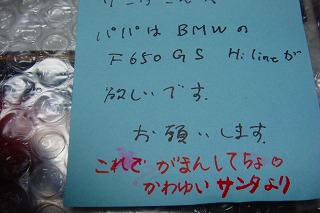 パパは BMWの
F650GS Hi lineが
欲しいです.
お願いします.
これで がまんしてちょ♡
かわゆい サンタより